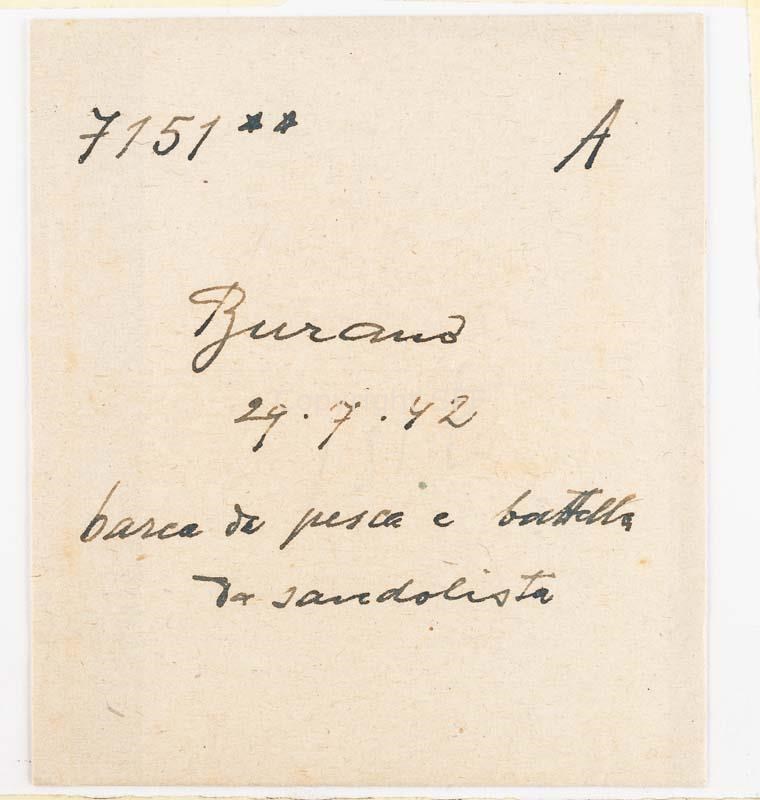 7151** A
Burano
29.7.42
barca da pesca e battella
da sandolista